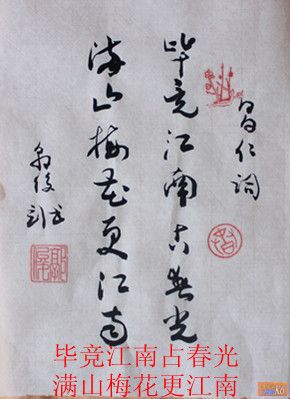 毕竞江南占春光
满山梅花更江南
毕竞江南占春光
满山梅花更江南